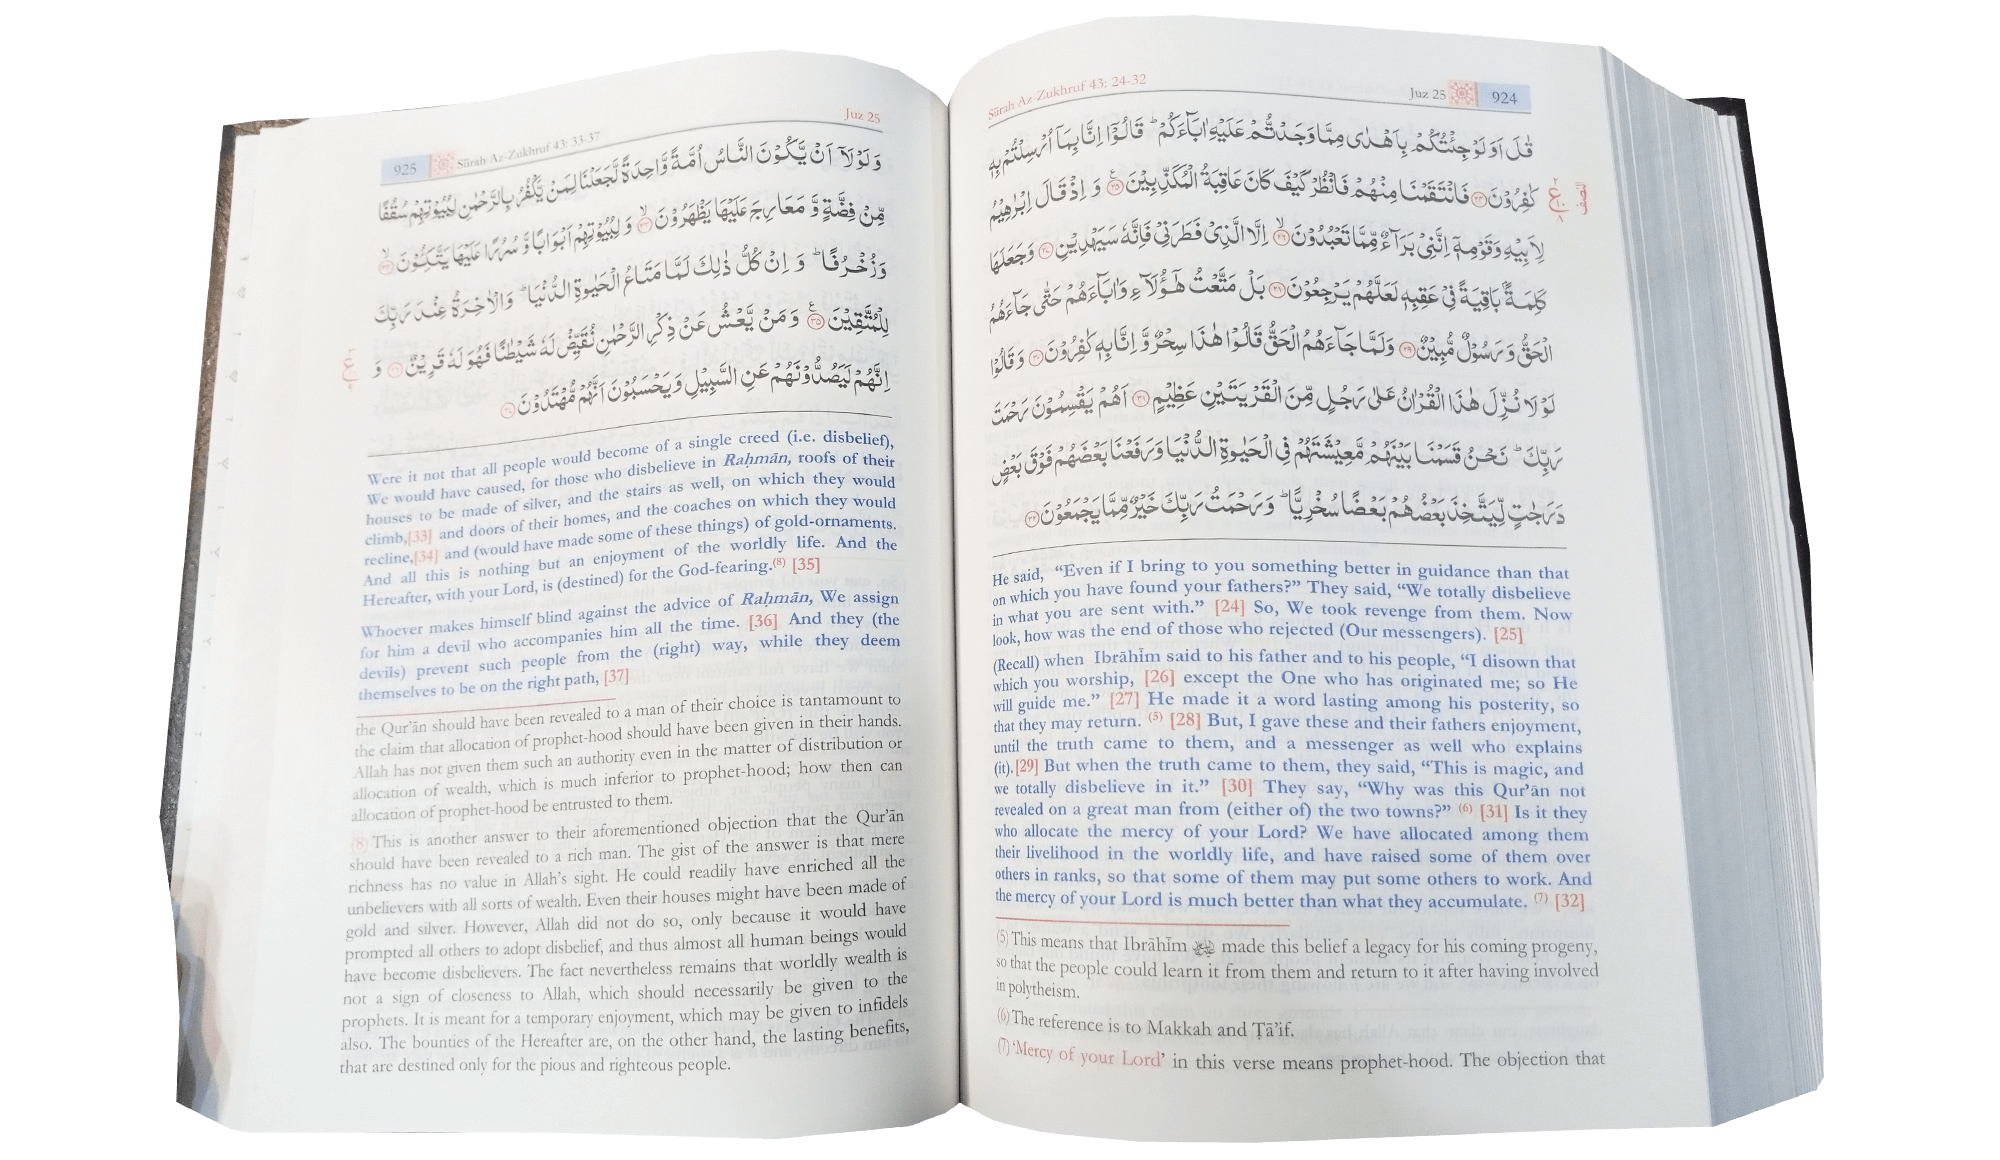 Sūrah Az-Zukhruf 43: 24-32
Juz 25
924
قُلْ اَوَلَوْ جِئْتُكُمْ بِاَهْدٰى مِمَّا وَجَدْتُّمْ عَلَيْهِ اٰبَآءَكُمْ ؕ قَالُوْۤا اِنَّا بِمَاۤ اُرْسِلْتُمْ بِهٖ
كٰفِرُوْنَ ۝۲۴ فَانْتَقَمْنَا مِنْهُمْ فَانْظُرْ كَيْفَ كَانَ عَاقِبَةُ الْمُكَذِّبِيْنَ ۝۲۵ وَ اِذْ قَالَ اِبْرٰهِيْمُ
لِاَبِيْهِ وَقَوْمِهٖۤ اِنَّنِيْ بَرَآءٌ مِّمَّا تَعْبُدُوْنَ ۝۲۶ اِلَّا الَّذِيْ فَطَرَنِيْ فَاِنَّهٗ سَيَهْدِيْنِ ۝۲۷ وَجَعَلَهَا
كَلِمَةًۢ بَاقِيَةً فِيْ عَقِبِهٖ لَعَلَّهُمْ يَرْجِعُوْنَ ۝۲۸ بَلْ مَتَّعْتُ هٰٓؤُلَآءِ وَاٰبَآءَهُمْ حَتّٰى جَآءَهُمُ
الْحَقُّ وَ رَسُوْلٌ مُّبِيْنٌ ۝۲۹ وَلَمَّا جَآءَهُمُ الْحَقُّ قَالُوْا هٰذَا سِحْرٌ وَّ اِنَّا بِهٖ كٰفِرُوْنَ ۝۳۰ وَ قَالُوْا
لَوْ لَا نُزِّلَ هٰذَا الْقُرْاٰنُ عَلٰى رَجُلٍ مِّنَ الْقَرْيَتَيْنِ عَظِيْمٍ ۝۳۱ اَهُمْ يَقْسِمُوْنَ رَحْمَتَ
رَبِّكَ ؕ نَحْنُ قَسَمْنَا بَيْنَهُمْ مَّعِيْشَتَهُمْ فِي الْحَيٰوةِ الدُّنْيَا وَرَفَعْنَا بَعْضَهُمْ فَوْقَ بَعْضٍ
دَرَجٰتٍ لِّيَتَّخِذَ بَعْضُهُمْ بَعْضًا سُخْرِيًّا ؕ وَرَحْمَتُ رَبِّكَ خَيْرٌ مِّمَّا يَجْمَعُوْنَ ۝۳۲
He said, “Even if I bring to you something better in guidance than that
on which you have found your fathers?” They said, “We totally disbelieve
in what you are sent with.” [24] So, We took revenge from them. Now
look, how was the end of those who rejected (Our messengers). [25]
(Recall) when Ibrāhīm said to his father and to his people, “I disown that
which you worship, [26] except the One who has originated me; so He
will guide me.” [27] He made it a word lasting among his posterity, so
that they may return. (5) [28] But, I gave these and their fathers enjoyment,
until the truth came to them, and a messenger as well who explains
(it).[29] But when the truth came to them, they said, “This is magic, and
we totally disbelieve in it.” [30] They say, “Why was this Qur’ān not
revealed on a great man from (either of) the two towns?” (6) [31] Is it they
who allocate the mercy of your Lord? We have allocated among them
their livelihood in the worldly life, and have raised some of them over
others in ranks, so that some of them may put some others to work. And
the mercy of your Lord is much better than what they accumulate. (7) [32]
(5) This means that Ibrāhīm made this belief a legacy for his coming progeny,
so that the people could learn it from them and return to it after having involved
in polytheism.
(6) The reference is to Makkah and Ṭā’if.
(7) ‘Mercy of your Lord’ in this verse means prophet-hood. The objection that
925
Sūrah Az-Zukhruf 43: 33-37
Juz 25
وَ لَوْ لَاۤ اَنْ يَّكُوْنَ النَّاسُ اُمَّةً وَّاحِدَةً لَّجَعَلْنَا لِمَنْ يَّكْفُرُ بِالرَّحْمٰنِ لِبُيُوْتِهِمْ سُقُفًا
مِّنْ فِضَّةٍ وَّ مَعَارِجَ عَلَيْهَا يَظْهَرُوْنَ ۝۳۳ وَ لِبُيُوْتِهِمْ اَبْوَابًا وَّ سُرُرًا عَلَيْهَا يَتَّكِـُٔوْنَ ۝۳۴
وَزُخْرُفًا ؕ وَ اِنْ كُلُّ ذٰلِكَ لَمَّا مَتَاعُ الْحَيٰوةِ الدُّنْيَا ؕ وَالْاٰخِرَةُ عِنْدَ رَبِّكَ
لِلْمُتَّقِيْنَ ۝۳۵ وَ مَنْ يَّعْشُ عَنْ ذِكْرِ الرَّحْمٰنِ نُقَيِّضْ لَهٗ شَيْطٰنًا فَهُوَ لَهٗ قَرِيْنٌ ۝۳۶ وَ
اِنَّهُمْ لَيَصُدُّوْنَهُمْ عَنِ السَّبِيْلِ وَيَحْسَبُوْنَ اَنَّهُمْ مُّهْتَدُوْنَ ۝۳۷
Were it not that all people would become of a single creed (i.e. disbelief),
We would have caused, for those who disbelieve in Raḥmān, roofs of their
houses to be made of silver, and the stairs as well, on which they would
climb,[33] and doors of their homes, and the coaches on which they would
recline,[34] and (would have made some of these things) of gold-ornaments.
And all this is nothing but an enjoyment of the worldly life. And the
Hereafter, with your Lord, is (destined) for the God-fearing.(8) [35]
Whoever makes himself blind against the advice of Raḥmān, We assign
for him a devil who accompanies him all the time. [36] And they (the
devils) prevent such people from the (right) way, while they deem
themselves to be on the right path, [37]
the Qur’ān should have been revealed to a man of their choice is tantamount to
the claim that allocation of prophet-hood should have been given in their hands.
Allah has not given them such an authority even in the matter of distribution or
allocation of wealth, which is much inferior to prophet-hood; how then can
allocation of prophet-hood be entrusted to them.
(8) This is another answer to their aforementioned objection that the Qur’ān
should have been revealed to a rich man. The gist of the answer is that mere
richness has no value in Allah’s sight. He could readily have enriched all the
unbelievers with all sorts of wealth. Even their houses might have been made of
gold and silver. However, Allah did not do so, only because it would have
prompted all others to adopt disbelief, and thus almost all human beings would
have become disbelievers. The fact nevertheless remains that worldly wealth is
not a sign of closeness to Allah, which should necessarily be given to the
prophets. It is meant for a temporary enjoyment, which may be given to infidels
also. The bounties of the Hereafter are, on the other hand, the lasting benefits,
that are destined only for the pious and righteous people.